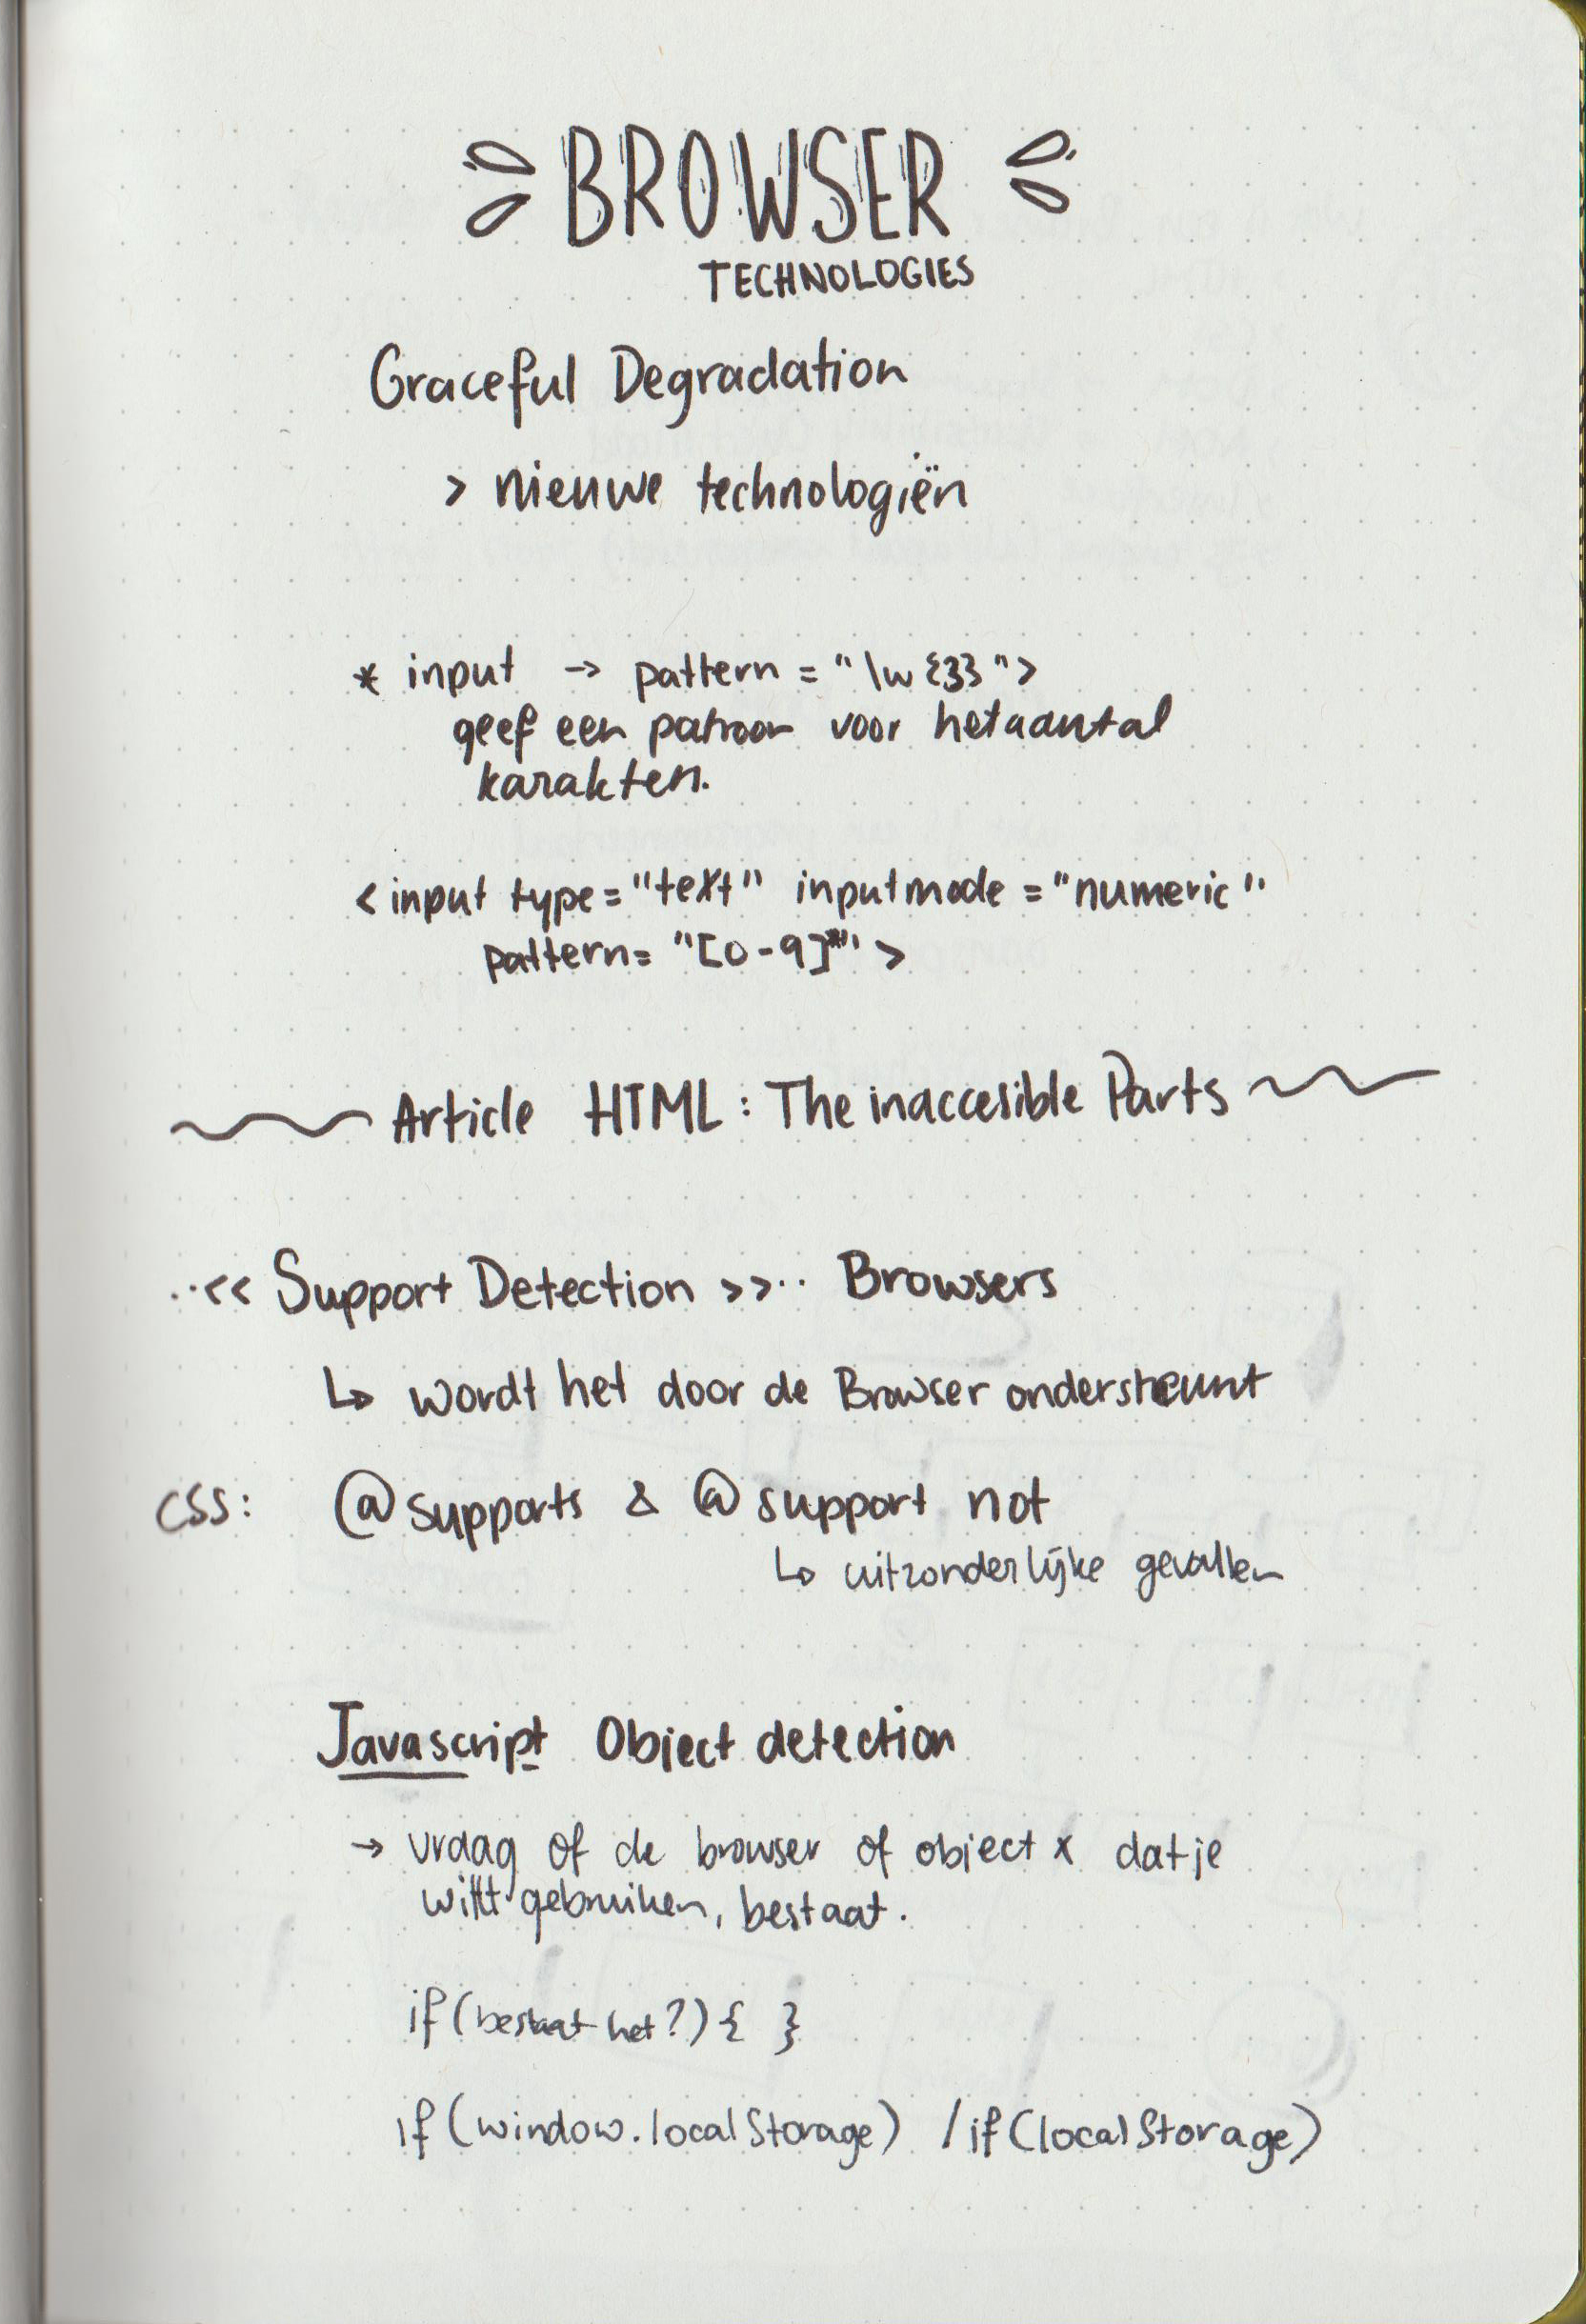 BROWSER
TECHNOLOGIES
Graceful Degradation
> nieuwe technologiën
* input → pattern = "\w{3}">
geef een patroon voor het aantal
karakten.
<input type="text" inputmode="numeric"
pattern="[0-9]*">
Article HTML: The inaccesible Parts
..<< Support Detection >>.. Browsers
↳ wordt het door de Browser ondersteunt
CSS: @supports & @support not
↳ uitzonderlijke gevallen
Javascript Object detection
→ vraag of de browser of object x dat je
wilt gebruiken, bestaat.
if(bestaat het?){ }
if(window.localStorage) / if(localStorage)